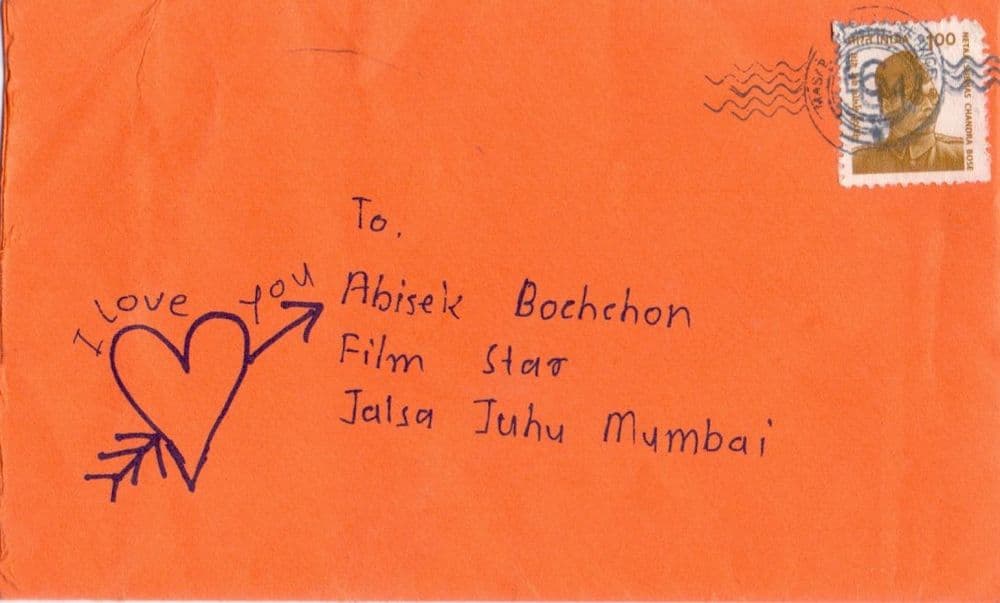 भारत INDIA 100
NETAJI SUBHAS CHANDRA BOSE
To,
I love you
Abisek Bochchon
Film Star
Jalsa Juhu Mumbai